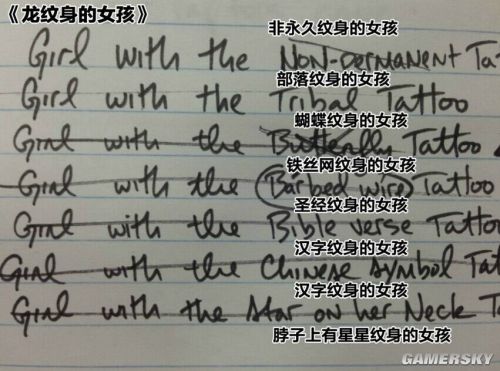 《龙纹身的女孩》
非永久纹身的女孩
Girl with the Non-permanent Ta
部落纹身的女孩
Girl with the Tribal Tattoo
蝴蝶纹身的女孩
Girl with the Butterfly Tattoo
铁丝网纹身的女孩
Girl with the Barbed wire Tattoo
圣经纹身的女孩
Girl with the Bible verse Tattoo
汉字纹身的女孩
Girl with the Chinese symbol Tat
汉字纹身的女孩
Girl with the star on her Neck T
脖子上有星星纹身的女孩
GAMERSKY